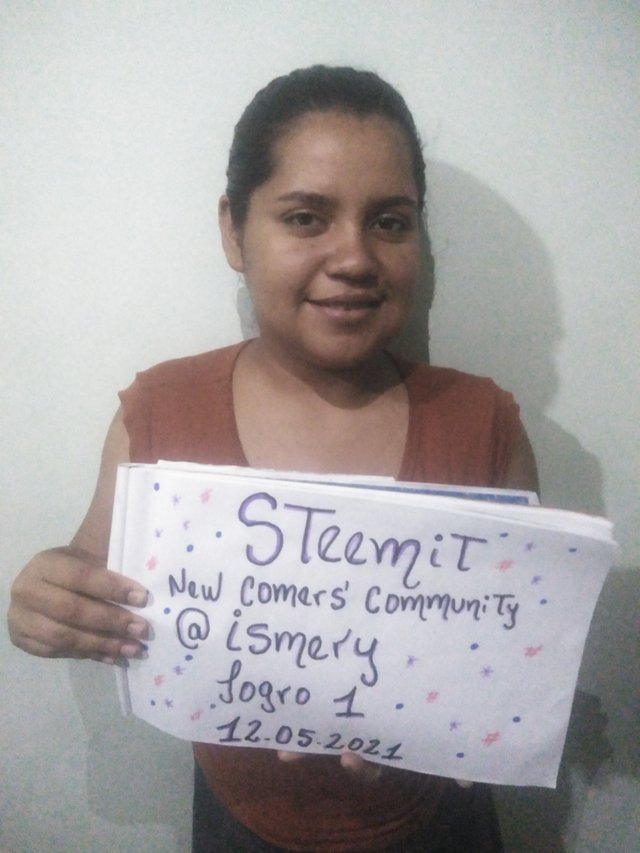 STeemiT
New Comers' Community
@ismery
logro 1
12.05.2021